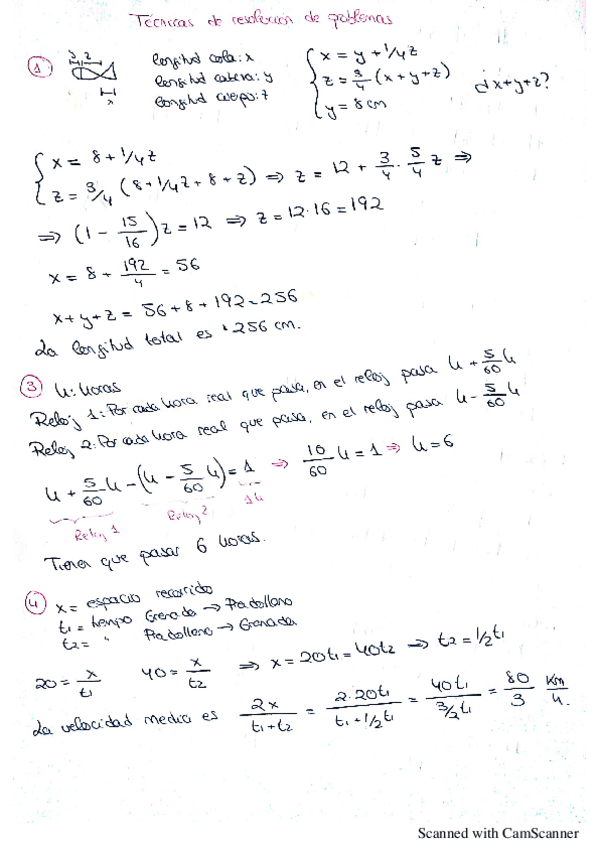 Técnicas de resolución de problemas
1
longitud cola: x
longitud cabeza: y
longitud cuerpo: z
x = y + 1/4 z
z = 3/4 (x + y + z)
y = 8 cm
¿x+y+z?
x = 8 + 1/4 z
z = 3/4 (8 + 1/4 z + 8 + z) ⇒ z = 12 + 3/4 · 5/4 z ⇒
⇒ (1 - 15/16) z = 12 ⇒ z = 12 · 16 = 192
x = 8 + 192/4 = 56
x + y + z = 56 + 8 + 192 = 256
La longitud total es 256 cm.
3 h: horas
Reloj 1: Por cada hora real que pasa, en el reloj pasa h + 5/60 h
Reloj 2: Por cada hora real que pasa, en el reloj pasa h - 5/60 h
h + 5/60 h - (h - 5/60 h) = 1 ⇒ 10/60 h = 1 ⇒ h = 6
Reloj 1 Reloj 2 1h
Tienen que pasar 6 horas.
4 x = espacio recorrido
t1 = tiempo Granada → Pradollano
t2 = " Pradollano → Granada
20 = x/t1 40 = x/t2 ⇒ x = 20t1 = 40t2 ⇒ t2 = 1/2 t1
La velocidad media es 2x/(t1 + t2) = 2·20t1/(t1 + 1/2 t1) = 40t1/(3/2 t1) = 80/3 Km/h.
Scanned with CamScanner